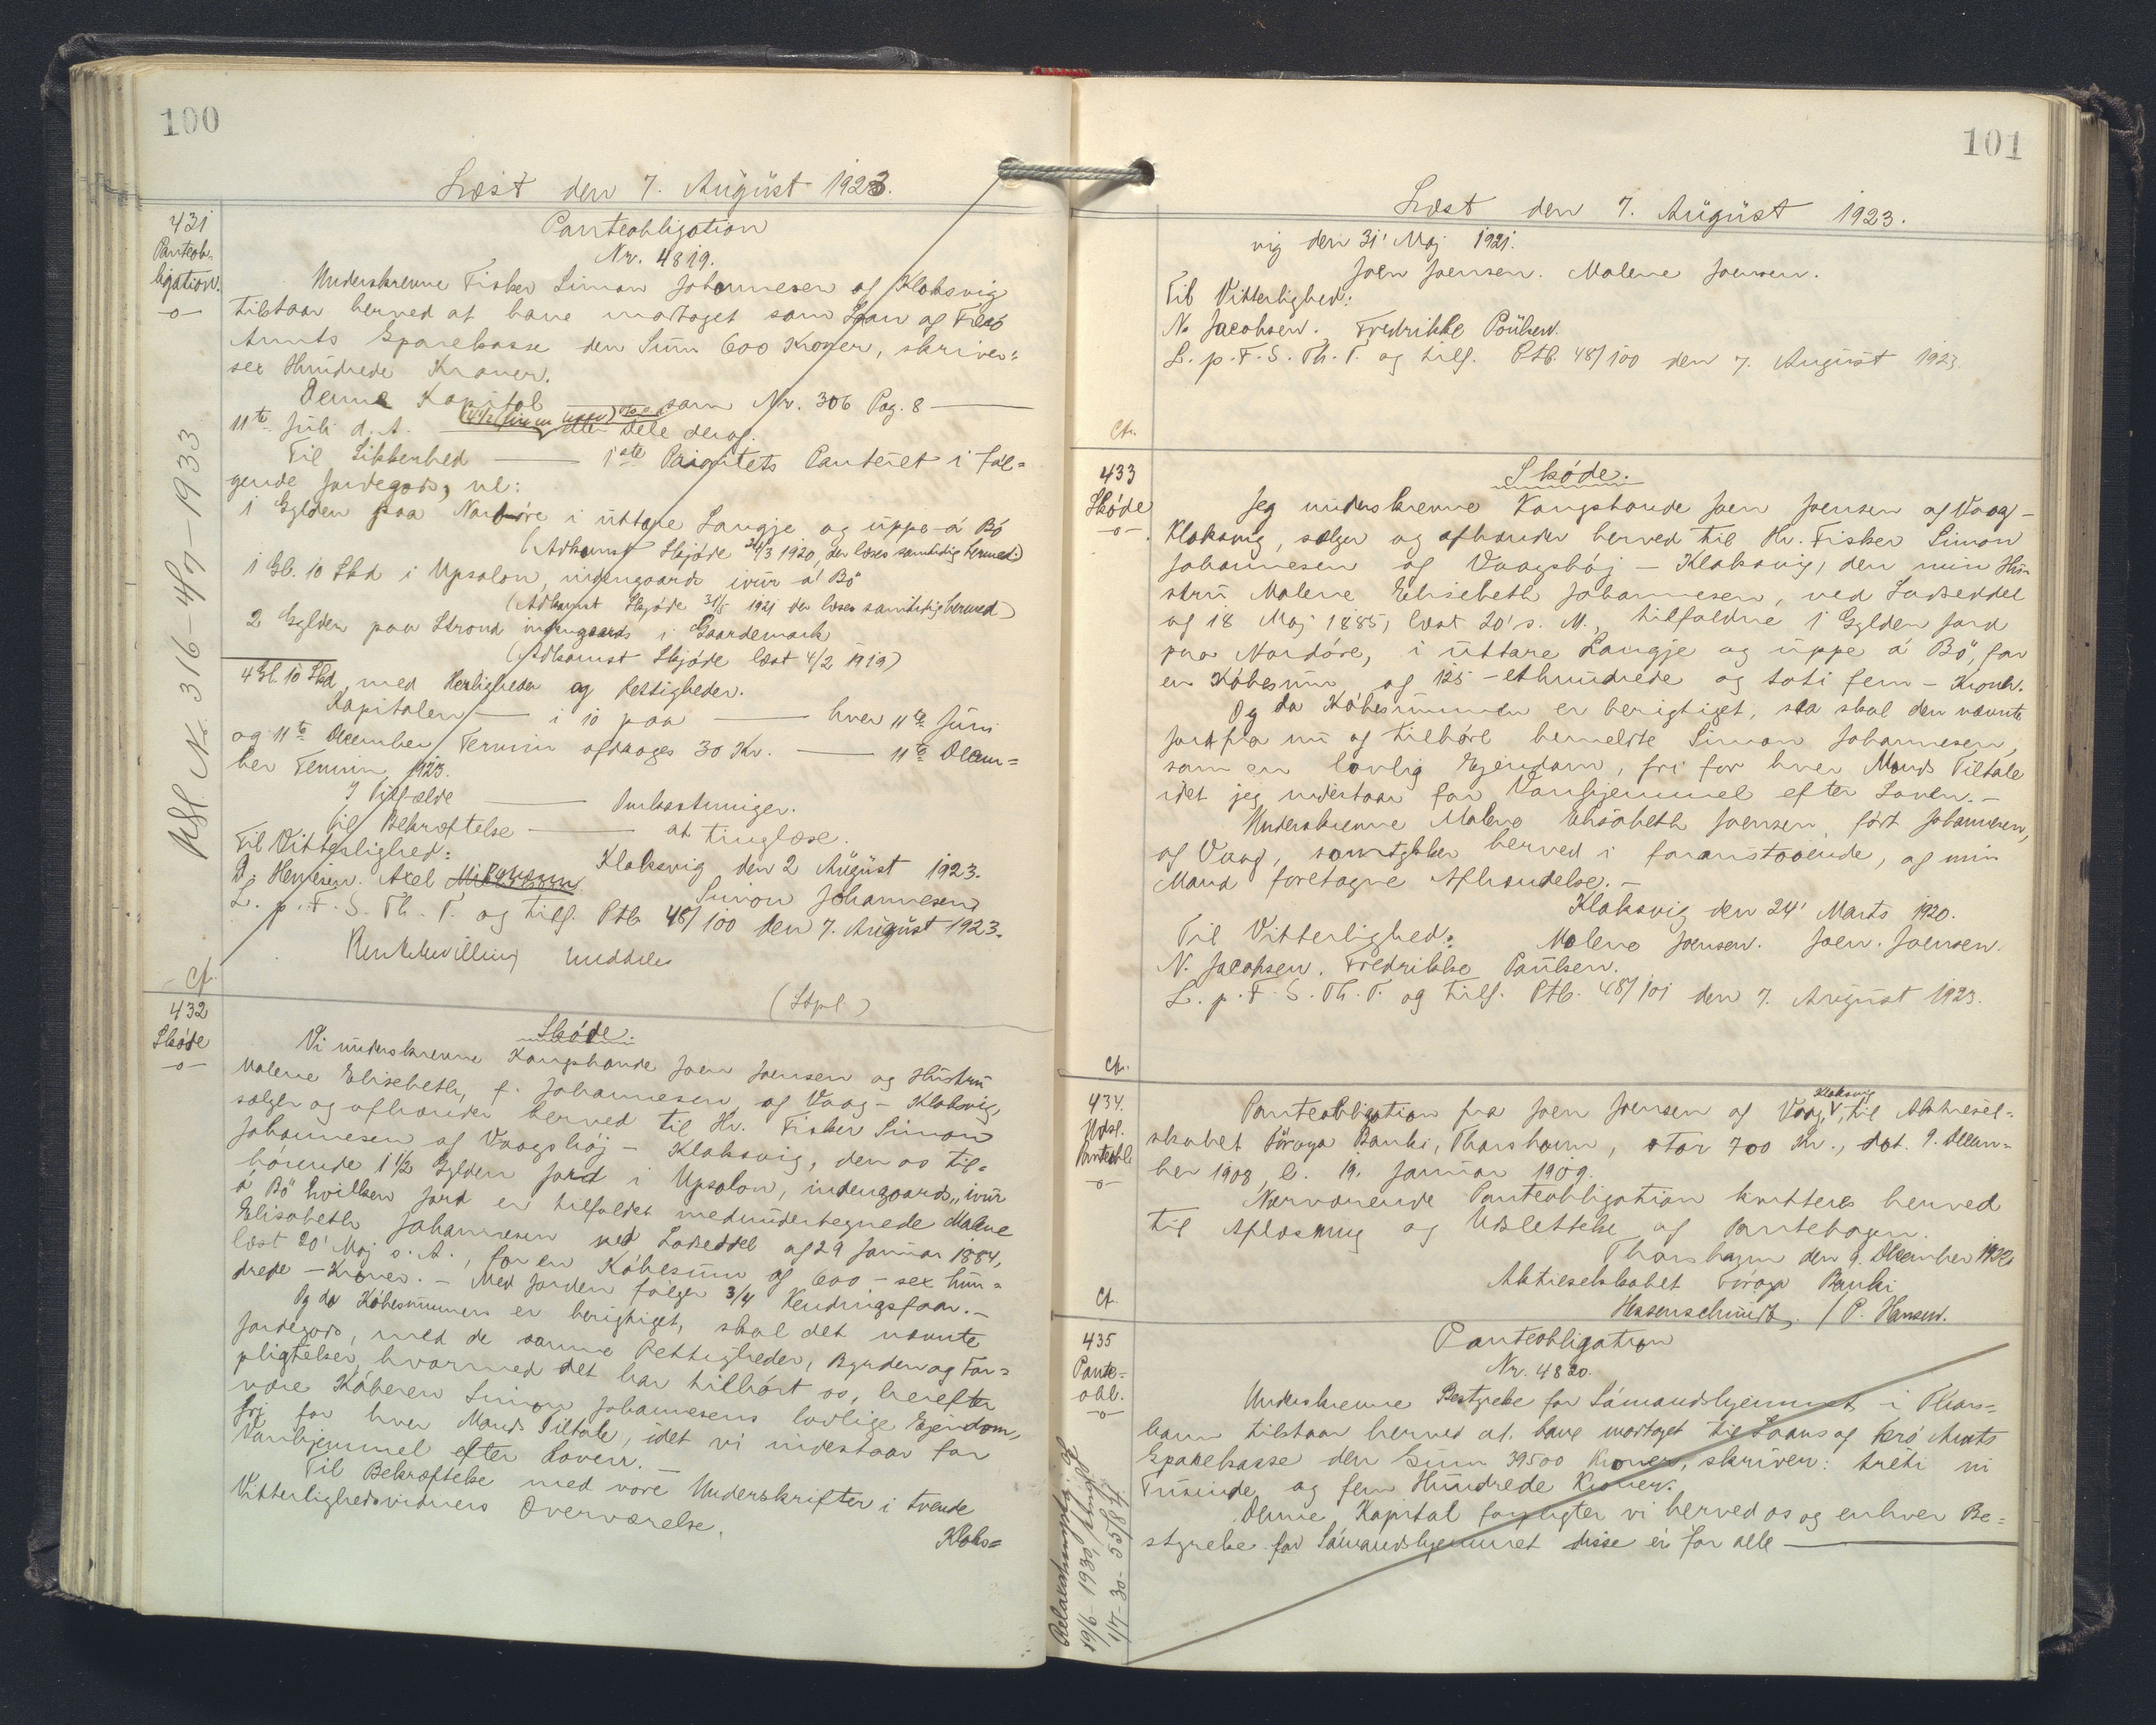 100
Læst den 7. August 1923.
431
Panteob-
ligation.
-o-
Panteobligation
Nr. 4819.
Underskrevne Fisker Simon Johannesen af Klaksvig
tilstaar herved at have modtaget som Laan af Færø
Amts Sparekasse den Sum 600 Kroner, skriver:
sex Hundrede Kroner.
Denne Kapital — som Nr. 306 Pag. 8 —
11te Juli d. A. eller dele deraf.
Til Sikkerhed — 1ste Prioritets Panteret i føl=
gende Jordegods, vl:
1 Gylden paa Nordøre i uttare Langje og uppe á Bø
(Adkomst Skjøde 24/3 1920, der læses samtidig hermed)
1 Gl. 10 Skd i Upsalon, indengaards ivur á Bø
(Adkomst Skjøde 31/5 1921 der læses samtidig hermed)
2 Gylden paa Strond indengaards i Gaardemark
(Adkomst Skjøde læst 4/2 1919)
4 Gl. 10 Skd, med Herligheder og Rettigheder.
Kapitalen — i 10 paa — hver 11te Juni
og 11te December Termin afdrages 30 Kr. — 11te Decem=
ber Termin 1923.
I Tilfælde — Omkostninger.
Til Bekræftelse — at tinglæse.
Til Vitterlighed: Klaksvig den 2 August 1923.
D. Heinesen. Axel Simon Johannesen
L. p. F. S. Th. T. og tilf. Ptb. 48/100 den 7. August 1923.
meddeles
(Stpl)
Cf.
Nr. 316-4/7-1933
432
Skøde
-o-
Skøde.
Vi underskrevne Kongsbonde Joen Joensen og Hustru
Malene Elisebeth, f. Johannesen af Vaag - Klaksvig,
sælger og afhænder herved til Hr. Fisker Simon
Johannesen af Vaagshøj - Klaksvig, den os til=
hørende 1 1/2 Gylden Jord i Upsalon, indengaards, ivur
á Bø hvilken Jord er tilfaldet medundertegnede Malene
Elisabeth Johannesen ved Lodseddel af 29 Januar 1884,
læst 20' Maj s. A., for en Købesum af 600 - sex hun=
drede - Kroner. - Med Jorden følger 3/4 Kendingsfaar. -
Og da Købesummen er berigtiget, skal det nævnte
Jordegods, med de samme Rettigheder, Byrder og For=
pligtelser, hvormed det har tilhørt os, herefter
være Køberen Simon Johannesens lovlige Ejendom,
fri for hver Mands Tiltale, idet vi indestaar for
Vanhjemmel efter Loven. -
Til Bekræftelse med vore Underskrifter i tvende
Vitterlighedsvidners Overværelse.
Klaks=
101
Læst den 7. August 1923.
vig den 31' Maj 1921.
Joen Joensen. Malene Joensen.
Til Vitterlighed:
N. Jacobsen. Fredrikke Poulsen.
L. p. F. S. Th. T. og tilf. Ptb. 48/100 den 7. August 1923.
Cf.
433
Skøde
-o-
Skøde.
Jeg underskrevne Kongsbonde Joen Joensen af Vaag-
Klaksvig, sælger og afhænder herved til Hr. Fisker Simon
Johannesen af Vaagshøj - Klaksvig, den min Hu-
stru Malene Elisebeth Johannesen, ved Lodseddel
af 18 Maj 1885, læst 20' s. M., tilfaldne 1 Gylden Jord
paa Nordøre, i uttare Langje og uppe á Bø, for
en Købesum af 125 - ethundrede og toti fem - Kroner.
Og da Købesummen er berigtiget, saa skal den nævnte
Jord fra nu af tilhøre bemeldte Simon Johannesen,
som en lovlig Ejendom, fri for hver Mands Tiltale
idet jeg indestaar for Vanhjemmel efter Loven. -
Underskrevne Malene Elisabeth Joensen, født Johannesen,
af Vaag, samtykker herved i foranstaaende, af min
Mand foretagne Afhændelse. -
Klaksvig den 24' Marts 1920.
Til Vitterlighed: Malene Joensen. Joen Joensen.
N. Jacobsen. Fredrikke Poulsen.
L. p. F. S. Th. T. og tilf. Ptb. 48/101 den 7. August 1923.
Cf.
434.
Udsl.
Panteobl.
-o-
Panteobligation fra Joen Joensen af Vaag, Klaksvig, til Aktiesel=
skabet Föroya Banki, Thorshavn, stor 700 Kr., dat. 9. Decem=
ber 1908, l. 19. Januar 1909.
Nærværende Panteobligation kvitteres herved
til Aflæsning og Udslettelse af Pantebogen.
Thorshavn den 9. December 1922
Aktieselskabet Föroya Banki
Hessenschmidt. / P. Hansen.
Cf.
435
Pante=
obl.
-o-
Panteobligation
Nr. 4820.
Underskrevne Bestyrelse for Sømandshjemmet i Thors=
havn tilstaar herved at have modtaget til Laans af Færø Amts
Sparekasse den Sum 39500 Kroner, skriver: treti ni
Tusinde og fem Hundrede Kroner.
Denne Kapital forpligter vi herved os og enhver Be=
styrelse for Sømandshjemmet disse ei for alle —
19/6 1930,
1/7-30-55/84.